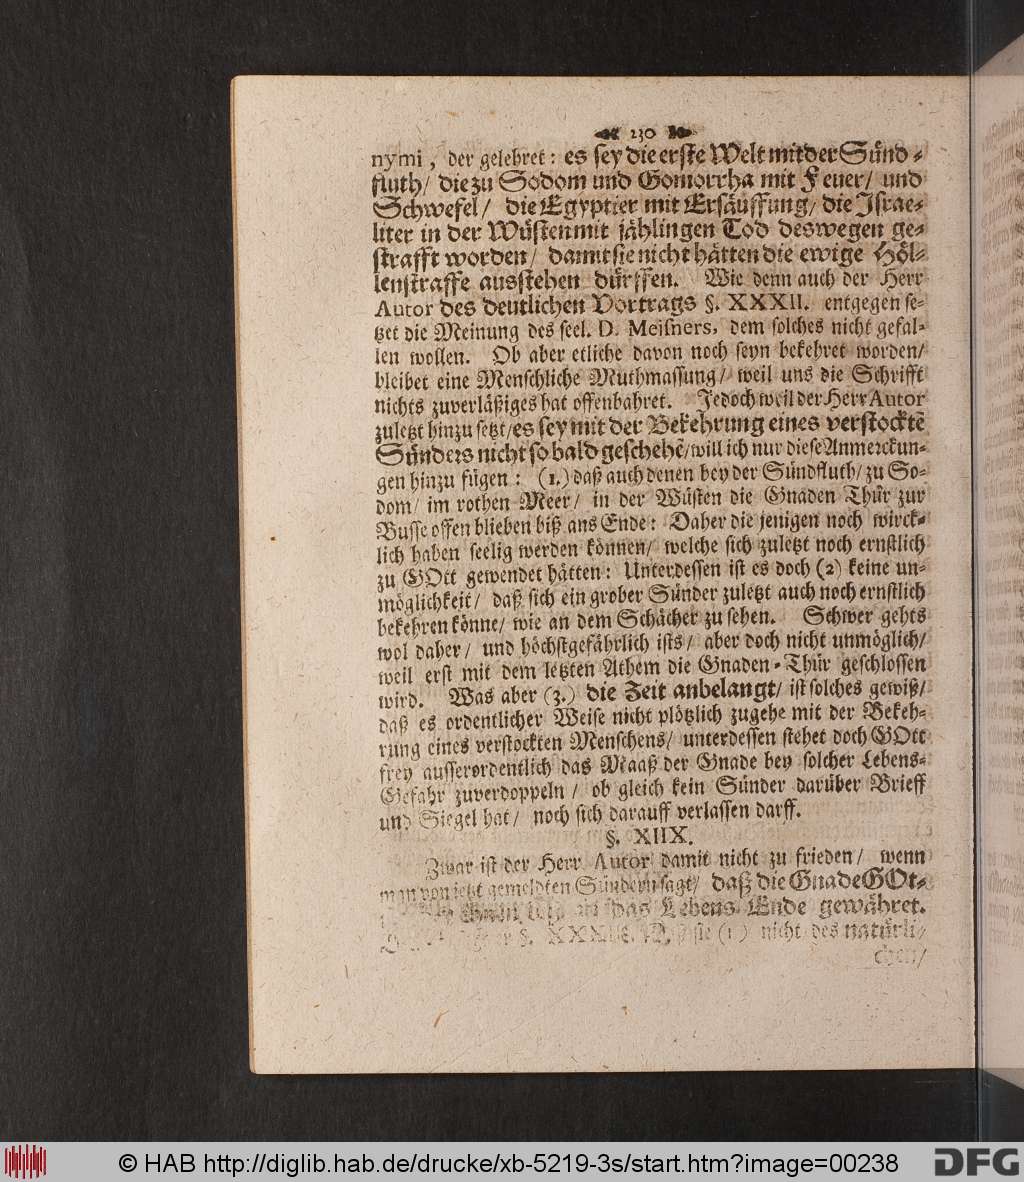 230
nymi, der gelehret: es sey die erste Welt mit der Sünd-
fluth/ die zu Sodom und Gomorrha mit Feuer/ und
Schwefel/ die Egyptier mit Ersäuffung/ die Israe-
liter in der Wüsten mit jählingen Tod deswegen ge-
strafft worden/ damit sie nicht hätten die ewige Höl-
lenstraffe ausstehen dürffen. Wie denn auch der Herr
Autor des deutlichen Vortrags §. XXXII. entgegen se-
tzet die Meinung des seel. D. Meisners, dem solches nicht gefal-
len wollen. Ob aber etliche davon noch seyn bekehret worden/
bleibet eine Menschliche Muthmassung/ weil uns die Schrifft
nichts zuverläßiges hat offenbahret. Jedoch weil der Herr Autor
zuletzt hinzu setzt/ es sey mit der Bekehrung eines verstocktẽ
Sünders nicht so bald geschehẽ/ will ich nur diese Anmerckun-
gen hinzu fügen: (1.) daß auch denen bey der Sündfluth/ zu So-
dom/ im rothen Meer/ in der Wüsten die Gnaden Thür zur
Busse offen blieben biß ans Ende: Daher die jenigen noch wirck-
lich haben seelig werden können/ welche sich zuletzt noch ernstlich
zu GOtt gewendet hätten: Unterdessen ist es doch (2) keine un-
möglichkeit/ daß sich ein grober Sünder zuletzt auch noch ernstlich
bekehren könne/ wie an dem Schächer zu sehen. Schwer gehts
wol daher/ und höchstgefährlich ists/ aber doch nicht unmöglich/
weil erst mit dem letzten Athem die Gnaden-Thür geschlossen
wird. Was aber (3.) die Zeit anbelangt/ ist solches gewiß/
daß es ordentlicher Weise nicht plötzlich zugehe mit der Bekeh-
rung eines verstockten Menschens/ unterdessen stehet doch GOtt
frey ausserordentlich das Maaß der Gnade bey solcher Lebens-
Gefahr zuverdoppeln/ ob gleich kein Sünder darüber Brieff
und Siegel hat/ noch sich darauff verlassen darff.
§. XIIX.
Zwar ist der Herr Autor damit nicht zu frieden/ wenn
man von jetzt gemeldten Sündern sagt/ daß die Gnade GOt-
das Lebens Ende gewähret.
§. sie (1) nicht des natürli-
chen/
© HAB http://diglib.hab.de/drucke/xb-5219-3s/start.htm?image=00238
DFG